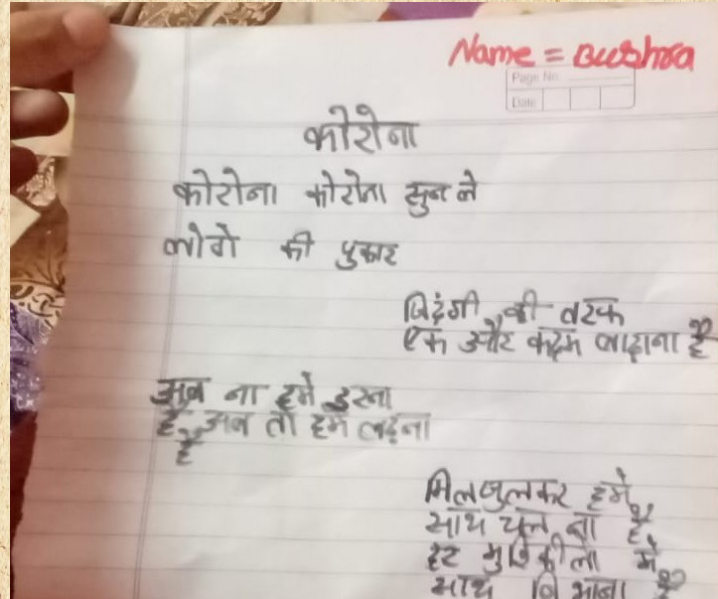 Name = Bushra
Page No.
Date
कोरोना
कोरोना कोरोना सुन ले
लोगो की पुकार
जिदंगी की तरफ
एक और कदम बाढ़ाना है
अब ना हमे डरना
है, अब तो हमे लढ़ना
है
मिलजुलकर हमे
साथ चल ना है
हर मुश्किीलो मे
साथ नि भाना है